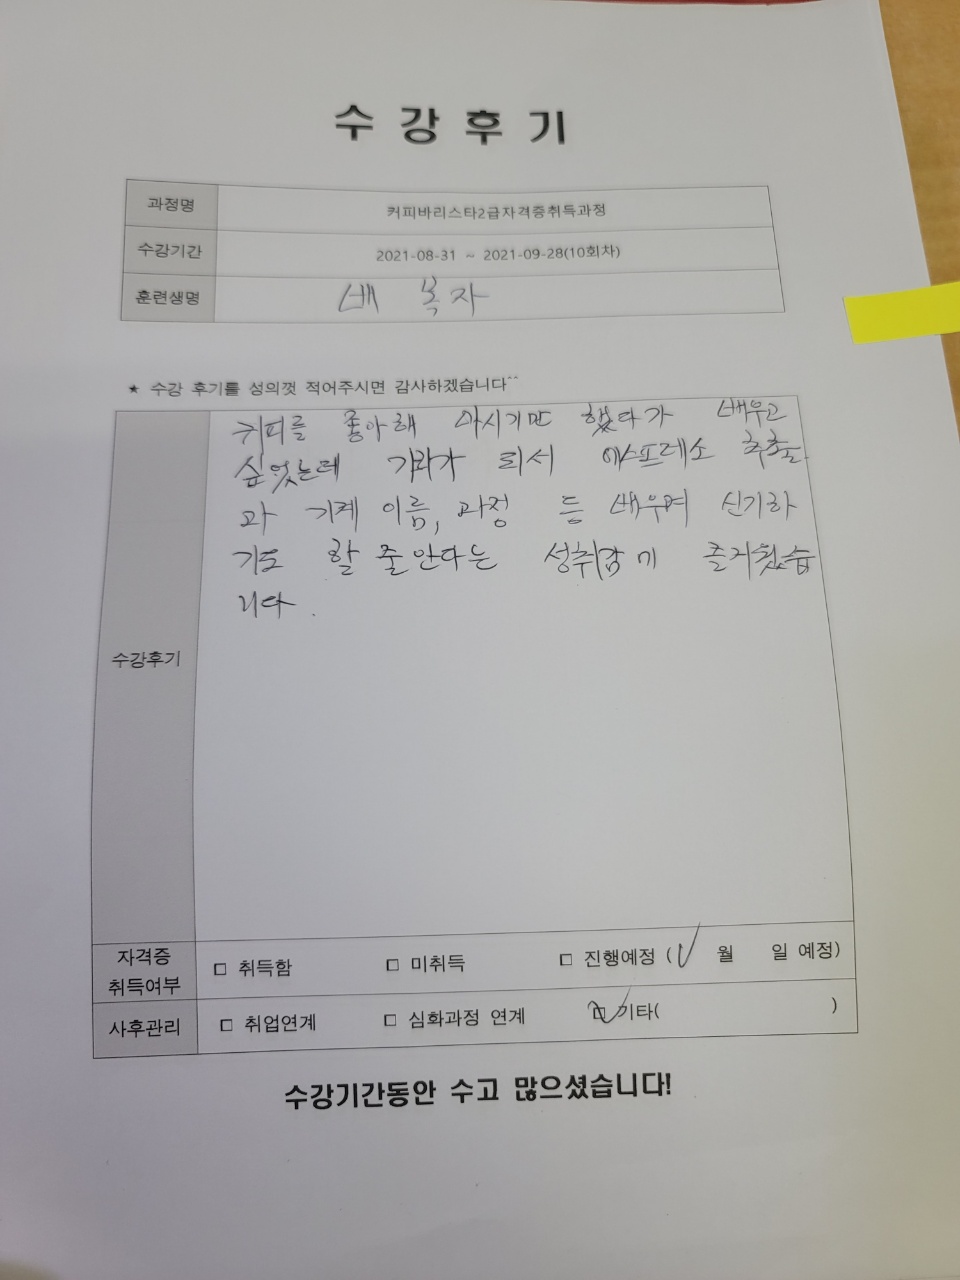 수강후기
과정명 커피바리스타2급자격증취득과정
수강기간 2021-08-31 ~ 2021-09-28(10회차)
훈련생명 배 복자
★ 수강 후기를 성의껏 적어주시면 감사하겠습니다^^
커피를 좋아해 마시기만 했다가 배우고
싶었는데 기회가 되서 에스프레소 추출
과 기계 이름, 과정 등 배우며 신기하
기도 할 줄 안다는 성취감에 즐거웠습
니다.
수강후기
자격증
취득여부 □ 취득함 □ 미취득 □ 진행예정 ( 월 일 예정)
사후관리 □ 취업연계 □ 심화과정 연계 □ 기타( )
수강기간동안 수고 많으셨습니다!